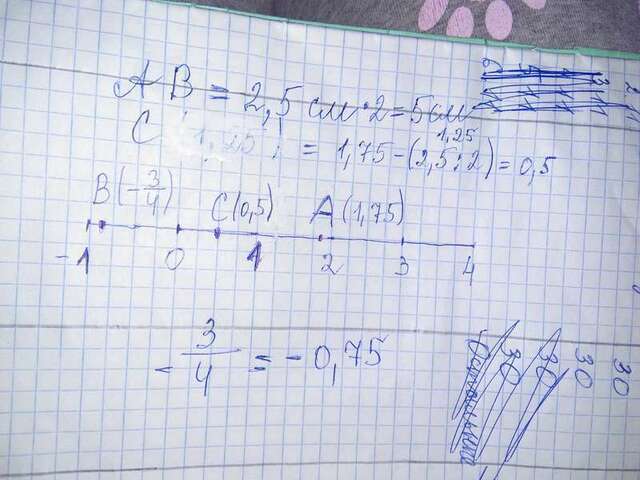 AB = 2,5 см · 2 = 5 см
1,25
C 1,25 = 1,75 - (2,5 : 2) = 0,5
B (-3/4) C (0,5) A (1,75)
-1 0 1 2 3 4
-3/4 = -0,75
30
30
30
30